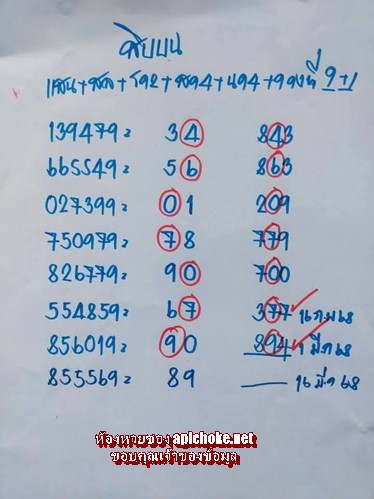 สิบบน
แสน+สิบ+ 9+1
139479= 34 843
665549= 56 863
027399= 01 209
750979= 78 779
826779= 90 700
554859= 67 377 16 กพ 68
856019= 90 894 1 มีค 68
855569= 89 — 16 มีค 68
ห้องหวยซอง apichoke.net
ขอบคุณเจ้าของข้อมูล